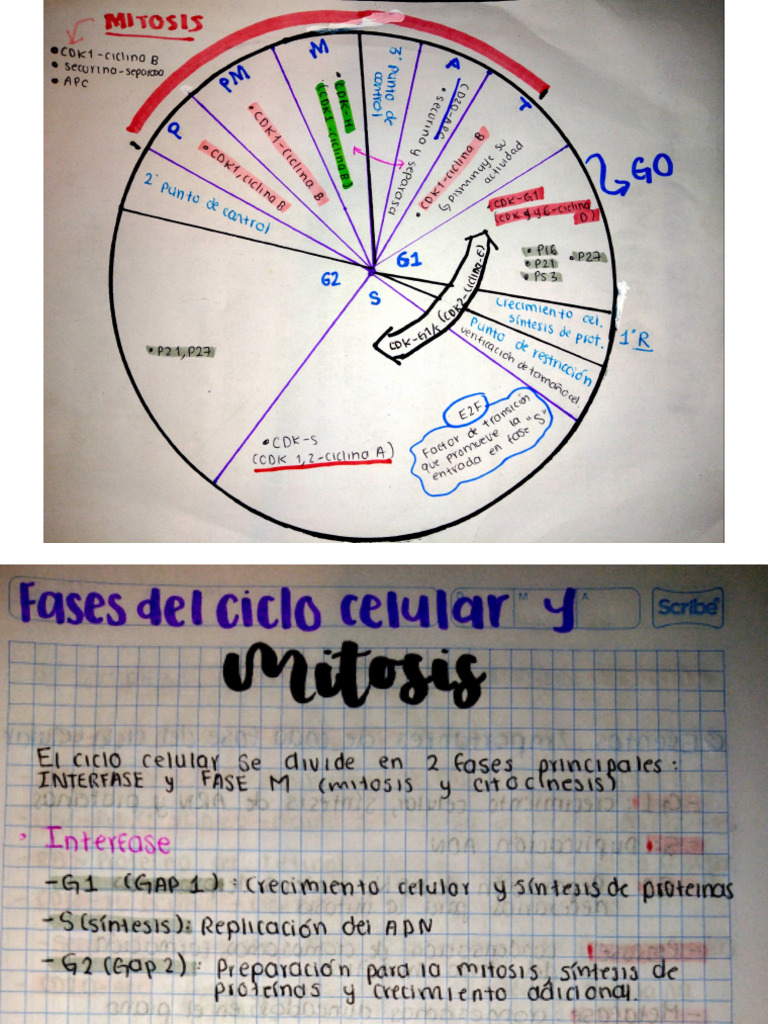 MITOSIS
• CDK1-ciclina B
• securina-separasa
• APC
P
PM
M
3° Punto de
control
A
T
2° Punto de control
• CDK1, ciclina B
• CDK1-ciclina B
• CDK-M
(CDK1-ciclina B)
CD20-APC
• securina y separasa
• CDK1-ciclina B
↳ Disminuye su
actividad
GO
(CDK-G1
(CDK 4 y 6-ciclina
D)
• P16
• P21
• P53
• P27
G1
G2
S
CDK-G1/S (CDK2-ciclina-E)
Crecimiento cel.
síntesis de prot.
1° R
Punto de restricción
verificación de tamaño cel.
• P21, P27
• CDK-S
(CDK 1,2-ciclina A)
E2F
Factor de transición
que promueve la
entrada en fase "S"
Scribe
Fases del ciclo celular y
Mitosis
El ciclo celular se divide en 2 fases principales:
INTERFASE y FASE M (mitosis y citocinesis)
• Interfase
-G1 (GAP 1): Crecimiento celular y síntesis de proteínas
-S (síntesis): Replicación del ADN
-G2 (Gap 2): Preparación para la mitosis, síntesis de
proteínas y crecimiento adicional.